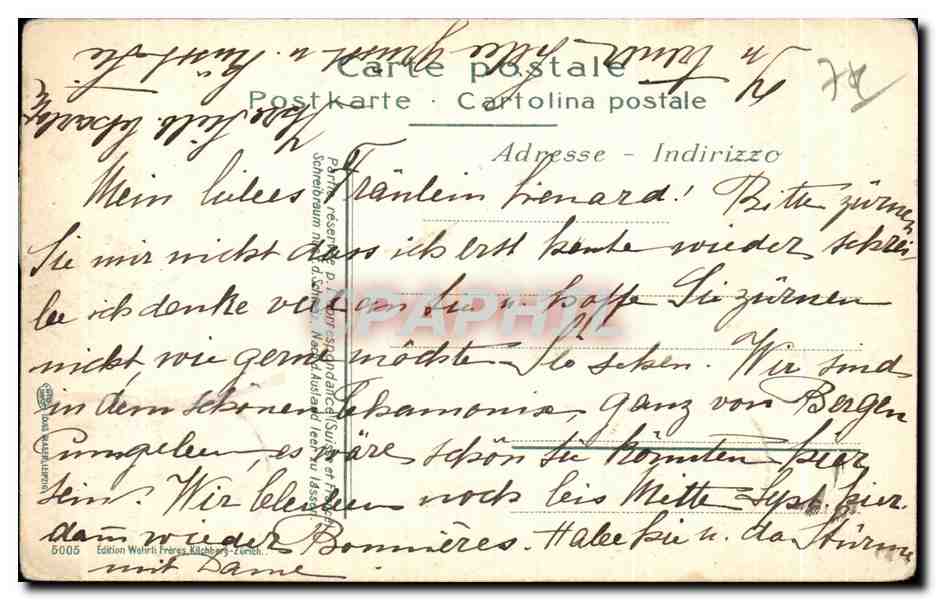 Carte postale
Postkarte · Cartolina postale
Adresse - Indirizzo
Mein liebes Fräulein Lienard! Bitte zürnen
Sie mir nicht dass ich erst heute wieder schrei-
be ich denke viel an Sie u. hoffe Sie zürnen
nicht, wie gerne möchte Sie sehen. Wir sind
in dem schönen Chamonix, ganz von Bergen
umgeben, es wäre schön Sie könnten hier
sein. Wir bleiben noch bis Mitte Sept. hier
dann wieder Bonnières. Habe hie u. da Stürme
mit Dame
Partie réservée p. l. correspondance (Suisse et France)
Schreibraum nur f. d. Schweiz. Nach d. Ausland leer zu lassen
5005 Edition Wehrli Frères, Kilchberg-Zürich.
CPAPHIL